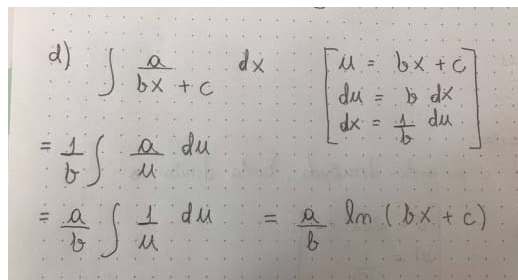 d) ∫ a/(bx + c) dx
[ u = bx + c
du = b dx
dx = 1/b du ]
= 1/b ∫ a/u du
= a/b ∫ 1/u du = a/b ln (bx + c)